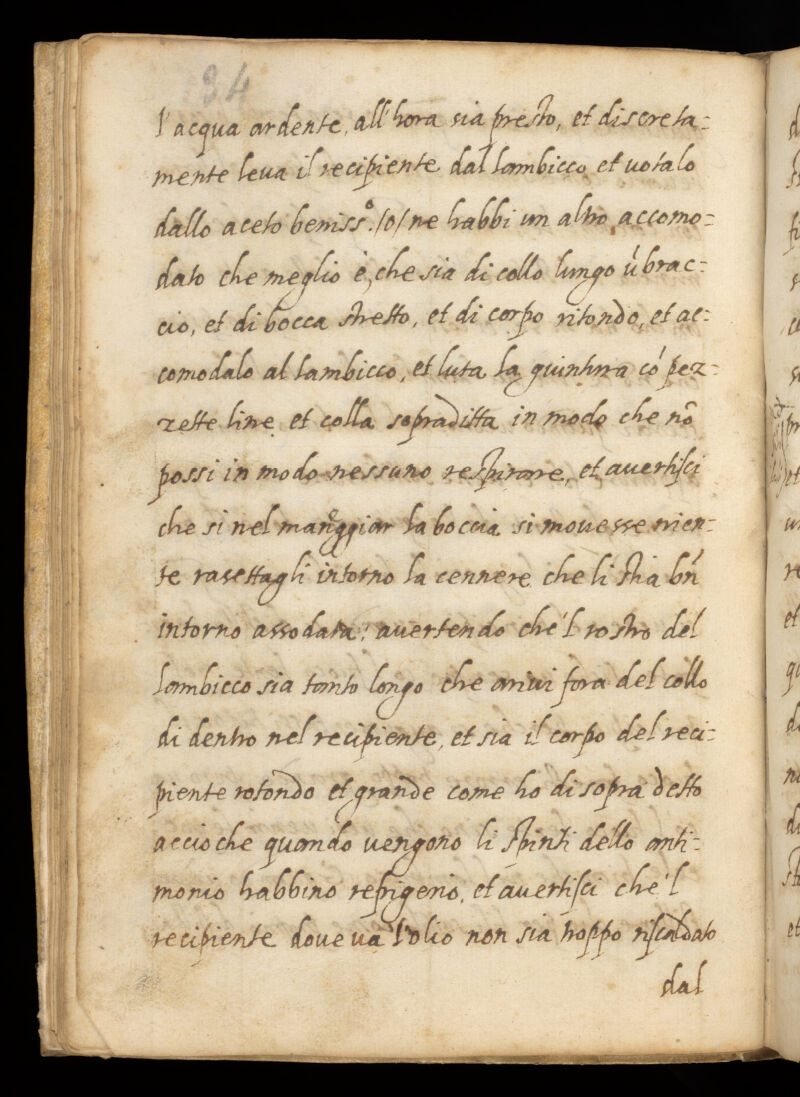 34
l'acqua ardente, all'hora sia presto, et discreta=
mente leva il recipiente dal lambicco et uotalo
dallo aceto beniss.º /o/ ne habbi un altro accomo=
dato che meglio è, che sia di collo lungo ú brac=
cio, et di bocca stretto, et di corpo ritondo, et ac=
comodalo al lambicco, et luta la giuntura có pez=
zette line et colla sopraditta in modo che nõ
possi in modo nessuno respirare, et avertisci
che si nel maneggiar la boccia si movesse nien=
te rasettagli intorno la cennere che li stia bń
intorno assodata; avertendo che'l rostro del
lambicco sia tanto longo che arivi fora del collo
di dentro nel recipiente, et sia il corpo del reci=
piente rotondo et grande come ho di sopra detto
accioche quando vengono li spiriti dello anti=
monio habbino refrigerio, et avertisci che'l
recipiente dove va l'olio non sia troppo riscaldato
dal